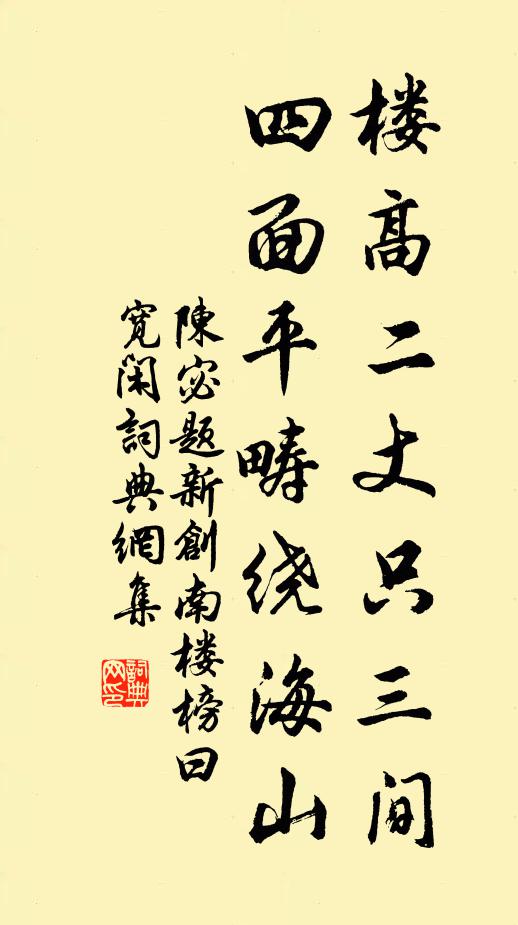 楼高二丈只三间
四面平畴绕海山
陳宓题新創南楼榜曰
寛闲詞典網集
詞典网印